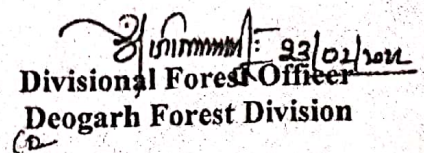 23/02/2022
Divisional Forest Officer
Deogarh Forest Division